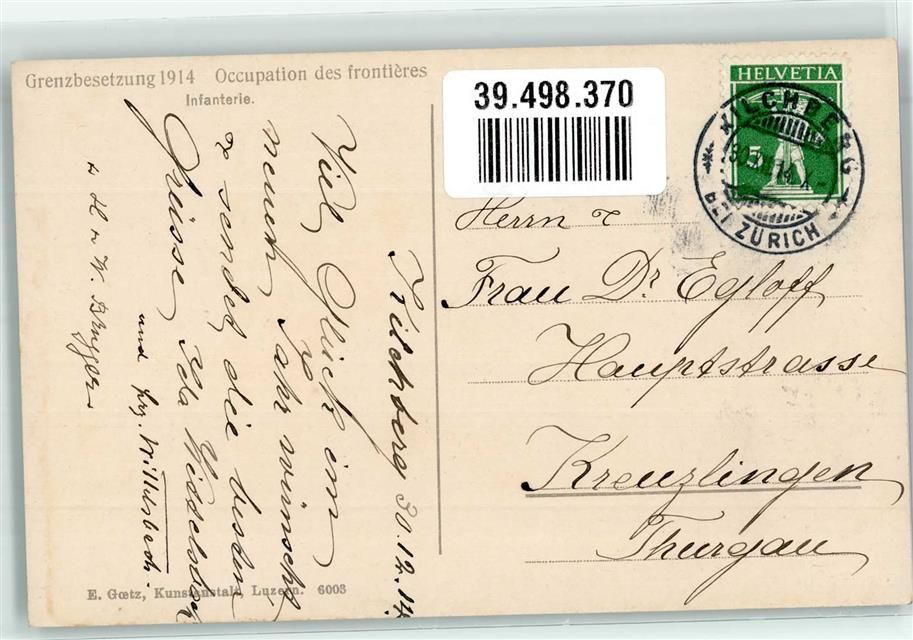 Grenzbesetzung 1914 Occupation des frontières
Infanterie.
39.498.370
HELVETIA
5
KILCHBERG
BEI ZÜRICH
Herrn &
Frau Dr Egloff
Hauptstrasse
Kreuzlingen
Thurgau
Kilchberg 30.12.14
Viel Glück im
neuen Jahr wünscht
& sendet die besten
Grüsse Ida
und
E. Gœtz, Kunstanstalt, Luzern. 6003